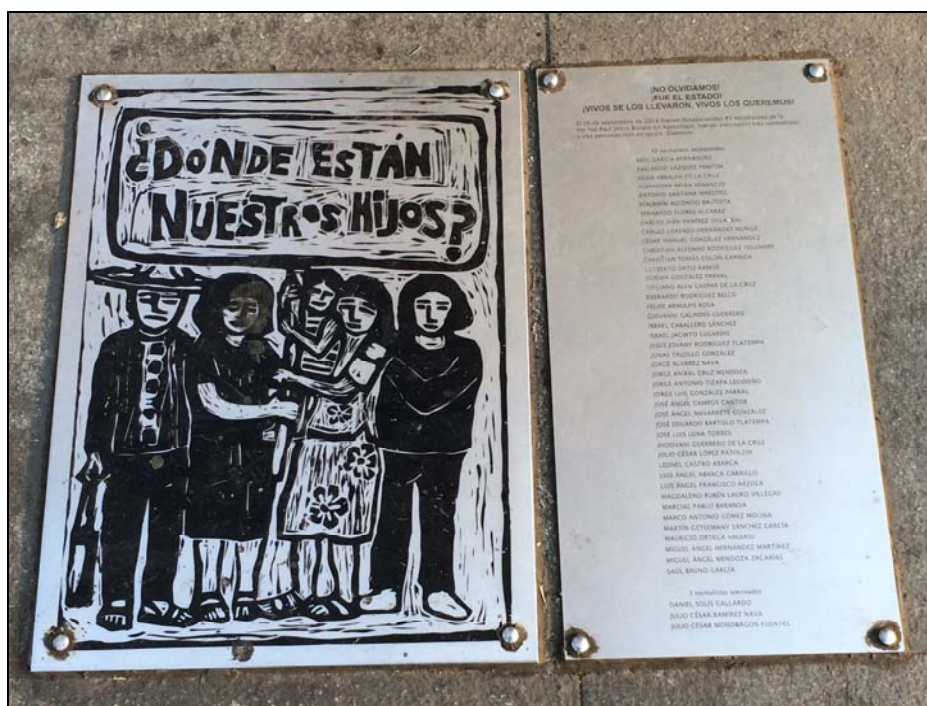 ¿DÓNDE ESTÁN
NUESTROS HIJOS?
¡NO OLVIDAMOS!
¡FUE EL ESTADO!
¡VIVOS SE LOS LLEVARON, VIVOS LOS QUEREMOS!
El 26 de septiembre de 2014 fueron desaparecidos 43 estudiantes de la
Raúl Isidro Burgos en Ayotzinapa, fueron asesinados tres normalistas
y tres personas más en Iguala, Guerrero.
43 normalistas desaparecidos
ABEL GARCÍA HERNÁNDEZ
ABELARDO VÁZQUEZ PENITEN
ADÁN ABRAJAN DE LA CRUZ
ALEXANDER MORA VENANCIO
ANTONIO SANTANA MAESTRO
BENJAMÍN ASCENCIO BAUTISTA
BERNARDO FLORES ALCARAZ
CARLOS IVÁN RAMÍREZ VILLAREAL
CARLOS LORENZO HERNÁNDEZ MUÑOZ
CÉSAR MANUEL GONZÁLEZ HERNÁNDEZ
CHRISTIAN ALFONSO RODRÍGUEZ TELUMBRE
CHRISTIAN TOMÁS COLÓN GARNICA
CUTBERTO ORTIZ RAMOS
DORIAN GONZÁLEZ PARRAL
EMILIANO ALEN GASPAR DE LA CRUZ
EVERARDO RODRÍGUEZ BELLO
FELIPE ARNULFO ROSA
GIOVANNI GALINDES GUERRERO
ISRAEL CABALLERO SÁNCHEZ
ISRAEL JACINTO LUGARDO
JESÚS JOVANY RODRÍGUEZ TLATEMPA
JONÁS TRUJILLO GONZÁLEZ
JORGE ÁLVAREZ NAVA
JORGE ANÍBAL CRUZ MENDOZA
JORGE ANTONIO TIZAPA LEGIDEÑO
JORGE LUIS GONZÁLEZ PARRAL
JOSÉ ÁNGEL CAMPOS CANTOR
JOSÉ ÁNGEL NAVARRETE GONZÁLEZ
JOSÉ EDUARDO BARTOLO TLATEMPA
JOSÉ LUIS LUNA TORRES
JHOSIVANI GUERRERO DE LA CRUZ
JULIO CÉSAR LÓPEZ PATOLZIN
LEONEL CASTRO ABARCA
LUIS ÁNGEL ABARCA CARRILLO
LUIS ÁNGEL FRANCISCO ARZOLA
MAGDALENO RUBÉN LAURO VILLEGAS
MARCIAL PABLO BARANDA
MARCO ANTONIO GÓMEZ MOLINA
MARTÍN GETSEMANY SÁNCHEZ GARCÍA
MAURICIO ORTEGA VALERIO
MIGUEL ÁNGEL HERNÁNDEZ MARTÍNEZ
MIGUEL ÁNGEL MENDOZA ZACARÍAS
SAÚL BRUNO GARCÍA
3 normalistas asesinados
DANIEL SOLIS GALLARDO
JULIO CÉSAR RAMÍREZ NAVA
JULIO CÉSAR MONDRAGÓN FUENTES